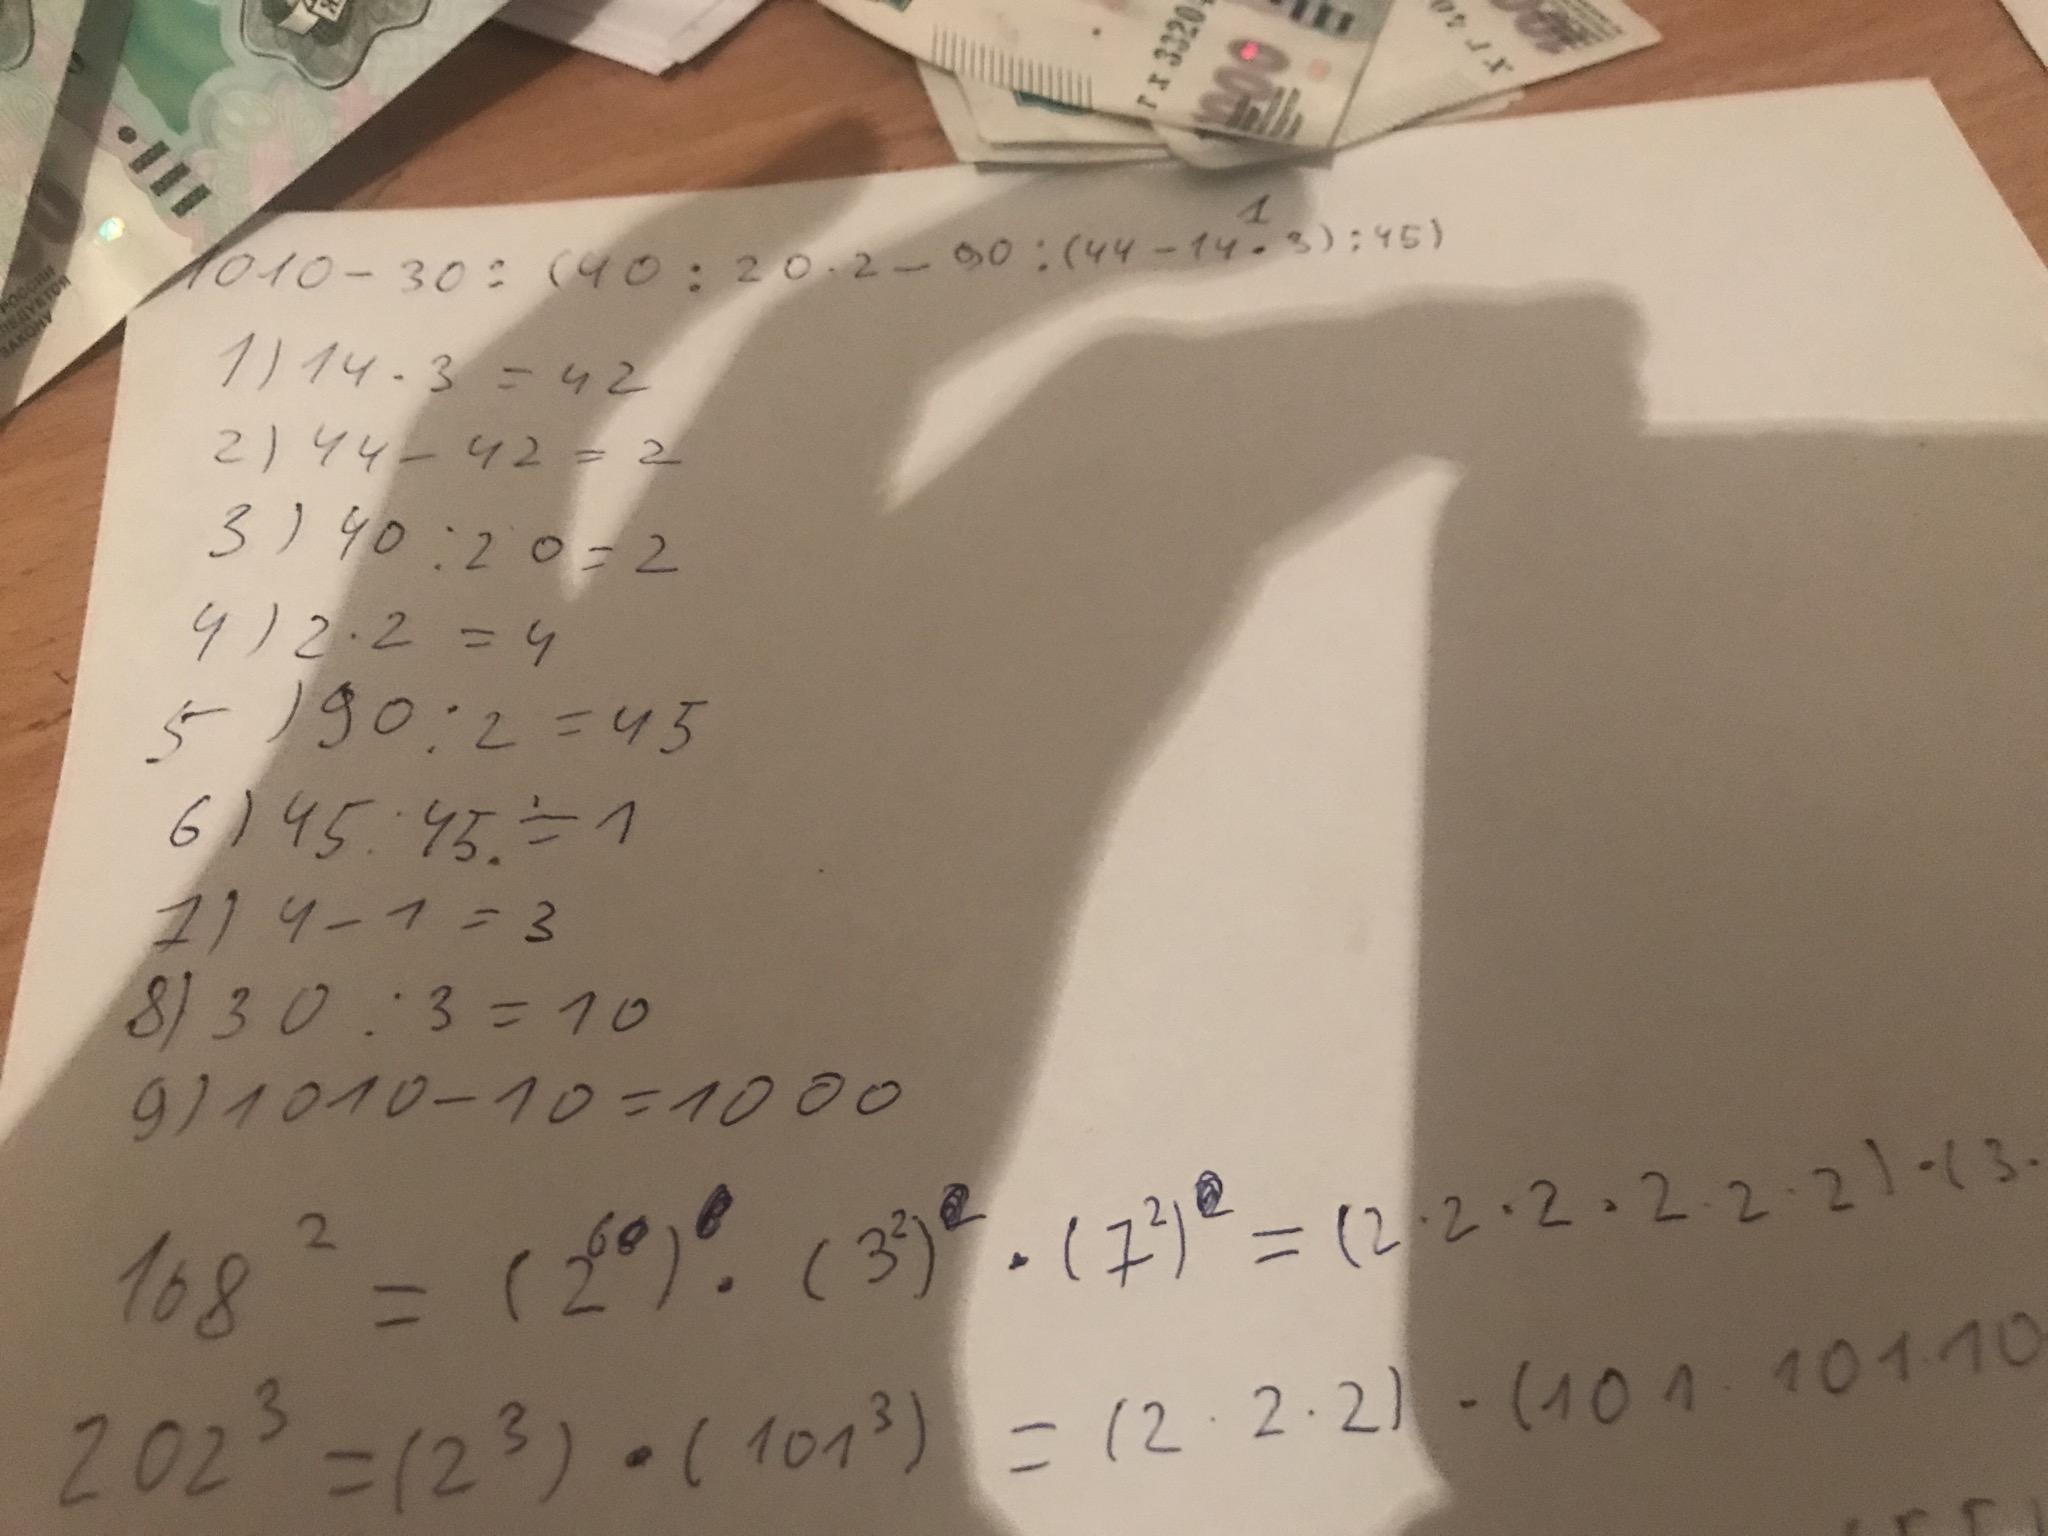 РОССИЯ
ЗАКОНУ
ГХ 3320
1
1010 - 30 : (40 : 20 · 2 - 90 : (44 - 14 · 3) : 45)
1) 14 · 3 = 42
2) 44 - 42 = 2
3) 40 : 20 = 2
4) 2 · 2 = 4
5) 90 : 2 = 45
6) 45 : 45 = 1
7) 4 - 1 = 3
8) 30 : 3 = 10
9) 1010 - 10 = 1000
168² = (2⁶) · (3²) · (7²) = (2 · 2 · 2 · 2 · 2 · 2) · (3 ·
202³ = (2³) · (101³) = (2 · 2 · 2) · (101 · 101 · 10